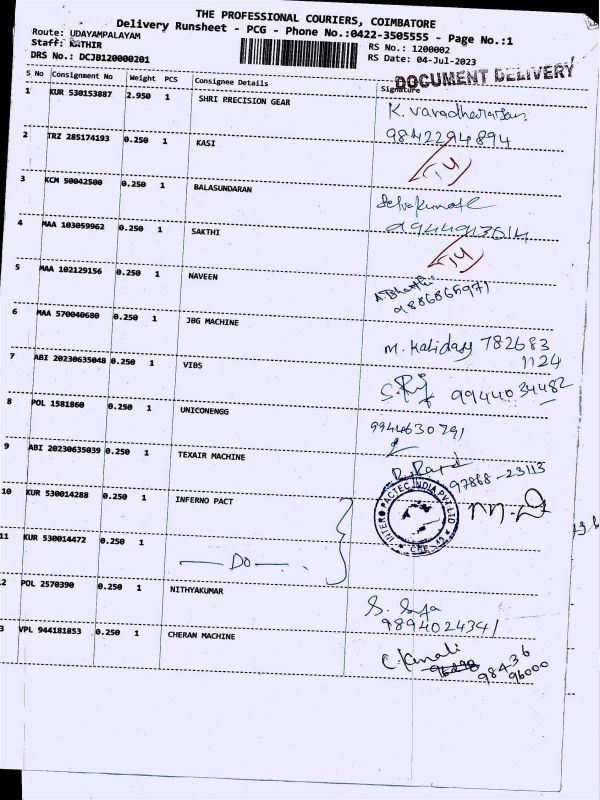 THE PROFESSIONAL COURIERS, COIMBATORE
Delivery Runsheet - PCG - Phone No.:0422-3505555 - Page No.:1
Route: UDAYAMPALAYAM RS No.: 1200002
Staff: KATHIR RS Date: 04-Jul-2023
DRS No.: DCJB120000201
DOCUMENT DELIVERY
S No Consignment No Weight PCS Consignee Details Signature
1 KUR 530153887 2.950 1 SHRI PRECISION GEAR K. Varadharajan
9842294894
2 TRZ 285174193 0.250 1 KASI
3 KCM 50042500 0.250 1 BALASUNDARAN Selvakumar
4 MAA 103059962 0.250 1 SAKTHI
5 MAA 102129156 0.250 1 NAVEEN
9886865971
6 MAA 570040680 0.250 1 JBG MACHINE M. Kalidass 782683
1124
7 ABI 20230635048 0.250 1 VIBS 9944034482
8 POL 1581860 0.250 1 UNICONENGG 9944630791
9 ABI 20230635039 0.250 1 TEXAIR MACHINE
97868-23113
10 KUR 530014288 0.250 1 INFERNO PACT
INTERO PACTEC INDIA PVT LTD
11 KUR 530014472 0.250 1
Do
2 POL 2570390 0.250 1 NITHYAKUMAR
9894024341
3 VPL 944181853 0.250 1 CHERAN MACHINE
98436
96000